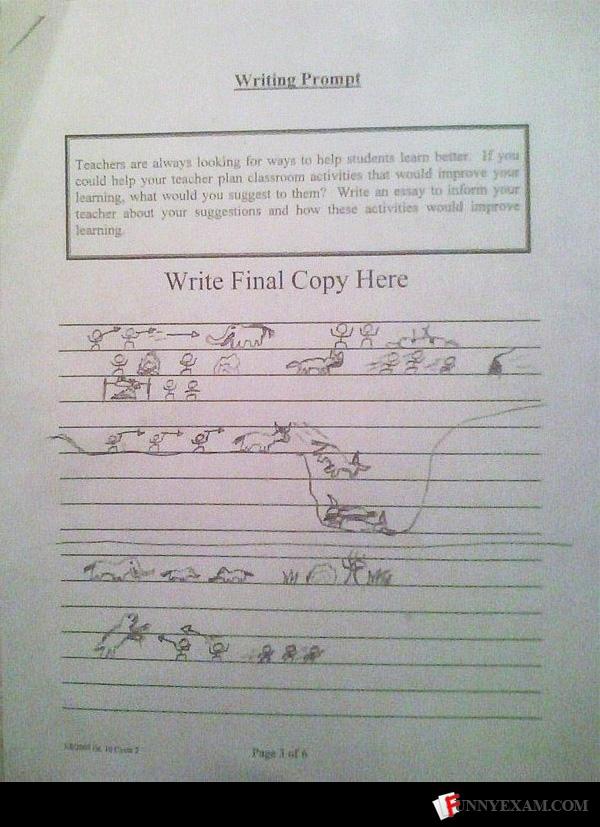 Writing Prompt
Teachers are always looking for ways to help students learn better. If you
could help your teacher plan classroom activities that would improve your
learning, what would you suggest to them? Write an essay to inform your
teacher about your suggestions and how these activities would improve
learning.
Write Final Copy Here
Page 3 of 6
FUNNYEXAM.COM